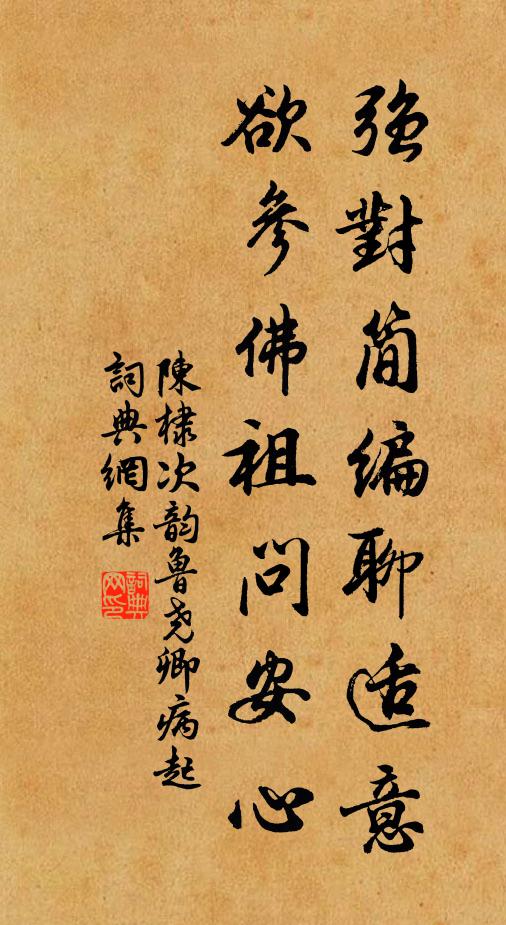 強對简编聊适意
欲參佛祖問安心
陳棣次韵魯尧卿病起
詞典網集
詞典
网印